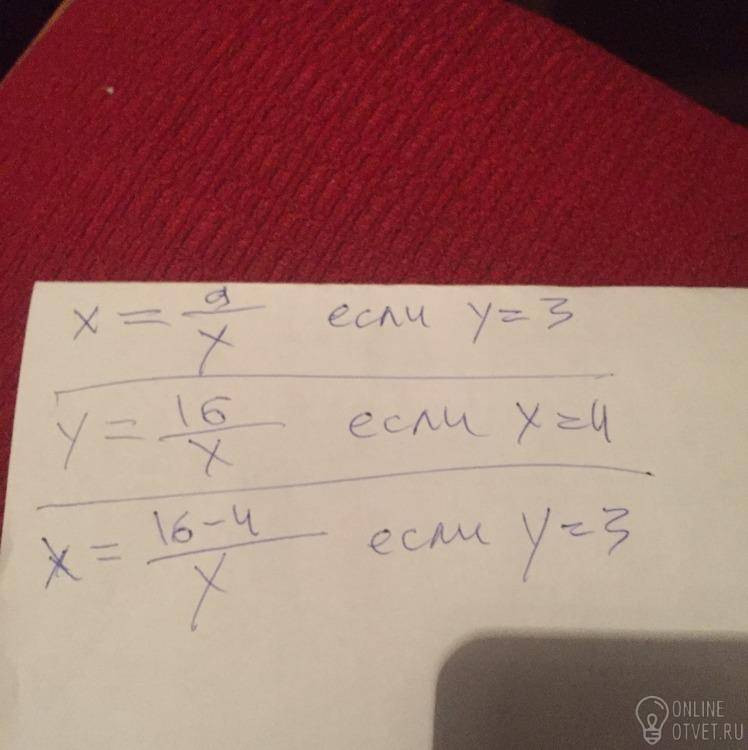 x = 9/y если y = 3
y = 16/x если x = 4
x = 16-4/y если y = 3
ONLINE
OTVET.RU